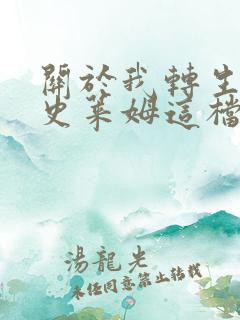 關於我轉生
史萊姆這檔
湯龍光
未经同意禁止转载